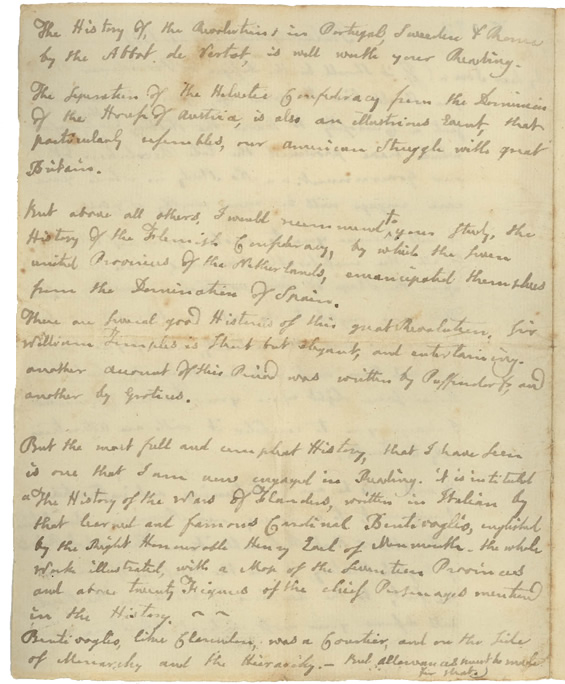 The History of, the Revolutions in Portugal, Sweeden & Rome
by the Abbot. de Vertot, is will worth your Reading.
The Seperation of the Helvetic Confederacy from the Dominion
of the House of Austria, is also an illustrious Event, that
particularly resembles, our american Struggle with great
Britain.
But above all others, I would recommend to your Study, the
History of the Flemish Confederacy, by which the seven
united Provinces of the Netherlands, emancipated themselves
from the Domination of Spain.
There are several good Histories of this great Revolution. Sir
William Temples is Short but elegant, and entertaining.
another account of this Period was written by Puffendorf, and
another by Grotius.
But the most full and compleat History, that I have seen
is one that I am now engaged in Reading. it is intituled
"The History of the Wars of Flanders, written in Italian by
that learned and famous Cardinal Bentivoglio, englished
by the Right Honourable Henry Earl of Monmouth. the whole
Work illustrated, with a Map of the Seventeen Provinces
and above twenty Figures of the chief Personages mentioned
in the History. ~ ~
Bentivoglio, like Clarendon, was a Courtier, and on the Side
of Monarchy and the Hierarchy.— But allowances must be made
for that.